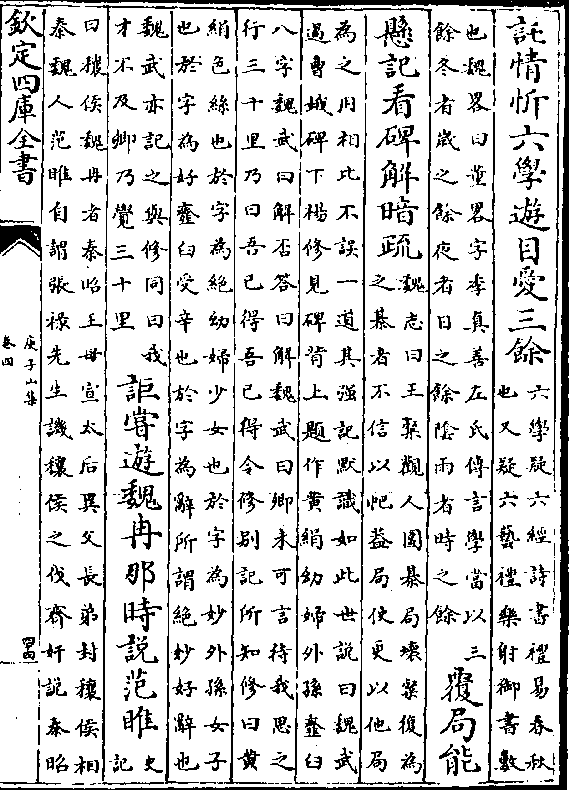 託情忻六學遊目愛三餘六學疑六經詩書禮易春秋
也又疑六藝禮樂射御書數
也魏畧曰董畧字季真善左氏傳言學當以三
餘冬者歲之餘夜者日之餘陰雨者時之餘
覆局能
懸記看碑解暗疏魏志曰王粲觀人圍棊局壞粲復為
之棊者不信以帊葢局使更以他局
為之用相比不誤一道其强記默識如此世說曰魏武
過曹娥碑下楊修見碑背上題作黄絹幼婦外孫虀臼
八字魏武曰解否答曰解魏武曰卿未可言待我思之
行三十里乃曰吾已得吾已得令修别記所知修曰黄
絹色絲也於字為絶幼婦少女也於字為妙外孫女子
也於字為好虀臼受辛也於字為辭所謂絶妙好辭也
魏武亦記之與修同曰我
才不及卿乃覺三十里
詎嘗遊魏冉那時說范睢史
記
曰穰侯魏冉者秦昭王母宣太后異父長弟封穰侯相
秦魏人范睢自謂張祿先生譏穰侯之伐齊奸說秦昭
欽定四庫全書
庾子山集
卷四